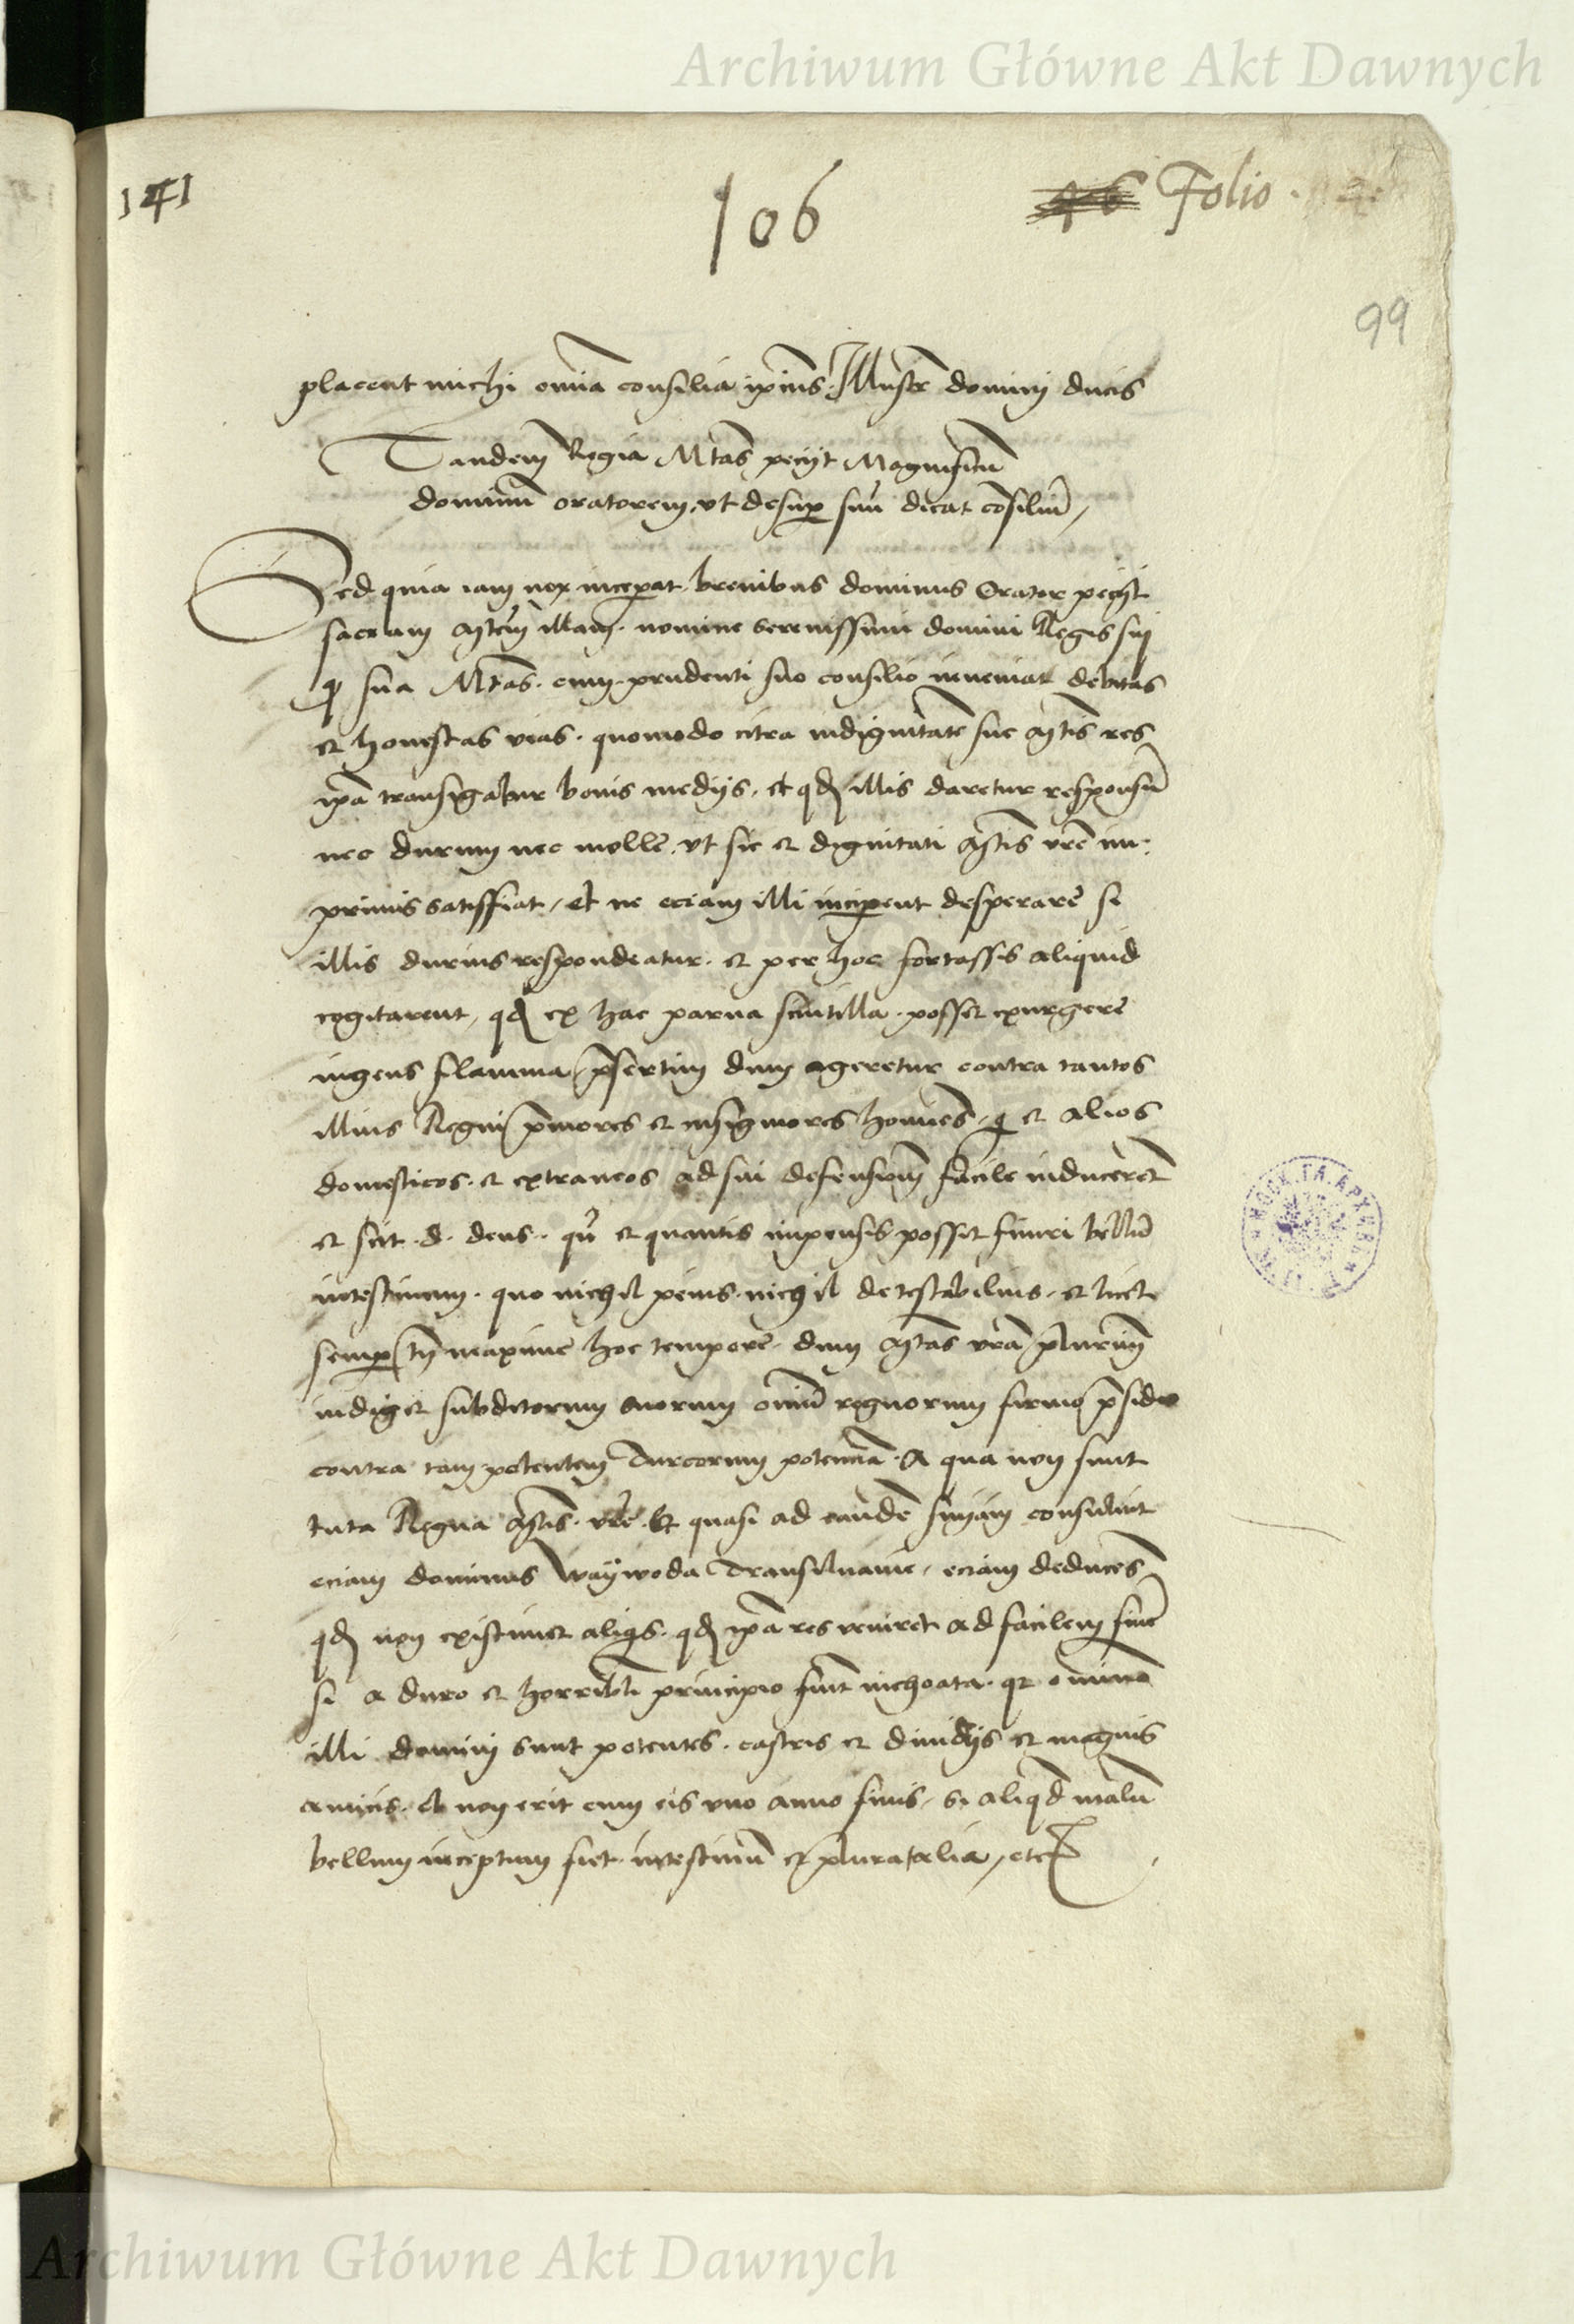 Archiwum Główne Akt Dawnych
141
106
46 Folio
99
placent michi om̄ia consilia ip̄ius Illustr̄ domini ducis
Tandem Regia Mtās peciit Magnificū
dominū oratorem, vt desup suū dicat cōsiliū,
Sed quia iam nox inceperat. brevibus dominus Orator peciit
sacram Mtēm illam. nomine serenissimi domini Regis sui
q sua Mtās. cum prudenti suo consilio inveniat debitas
et honestas vias. quomodo citra indignitatē sue Mtis res
ip̄a transigatur bonis medijs. et qd illis daretur responsū
nec durum nec molle. vt sic et dignitati Mtis vrē in:
primis satisffiat, et ne eciam illi inciperent desperare si
illis durius respondeatur. et per hoc fortassis aliquid
cogitarent, qd ex hac parva scintilla. posset exurgere
ingens flamma, p̄sertim dum ageretur contra tantos
illius Regni p̄mores et insigniores homīes, q et alios
domesticos. et extraneos ad sui defensionem facile inducerēt
et scit. d. deus. qn̄ et quantis impensis posset finiri bellū
intestinum. quo nichil peius. nichil detestabilius. et licet
semp tn̄ maxime hoc tempore. dum Mtās vrā plurimū
indiget subditorum suorum om̄iū regnorum firmo p̄sidio
contra tam potentem Turcorum potenciā. A qua non sunt
tuta Regna Mtis. vrē. Et quasi ad eandē sniam consuluit
eciam dominus Waÿwoda Transiluanie, eciam deducēs
qd non existimet aliqs. qd ip̄a res veniret ad facilem finē
si a duro et horribili principio fuit inchoata. qr omnino
illi domini sunt potentes. castris et divicijs et magnis
amicis. et non erit cum eis vno anno finis, si aliqd malū
bellum inceptum fiet. intestinū et plura talia, etc
Archiwum Główne Akt Dawnych